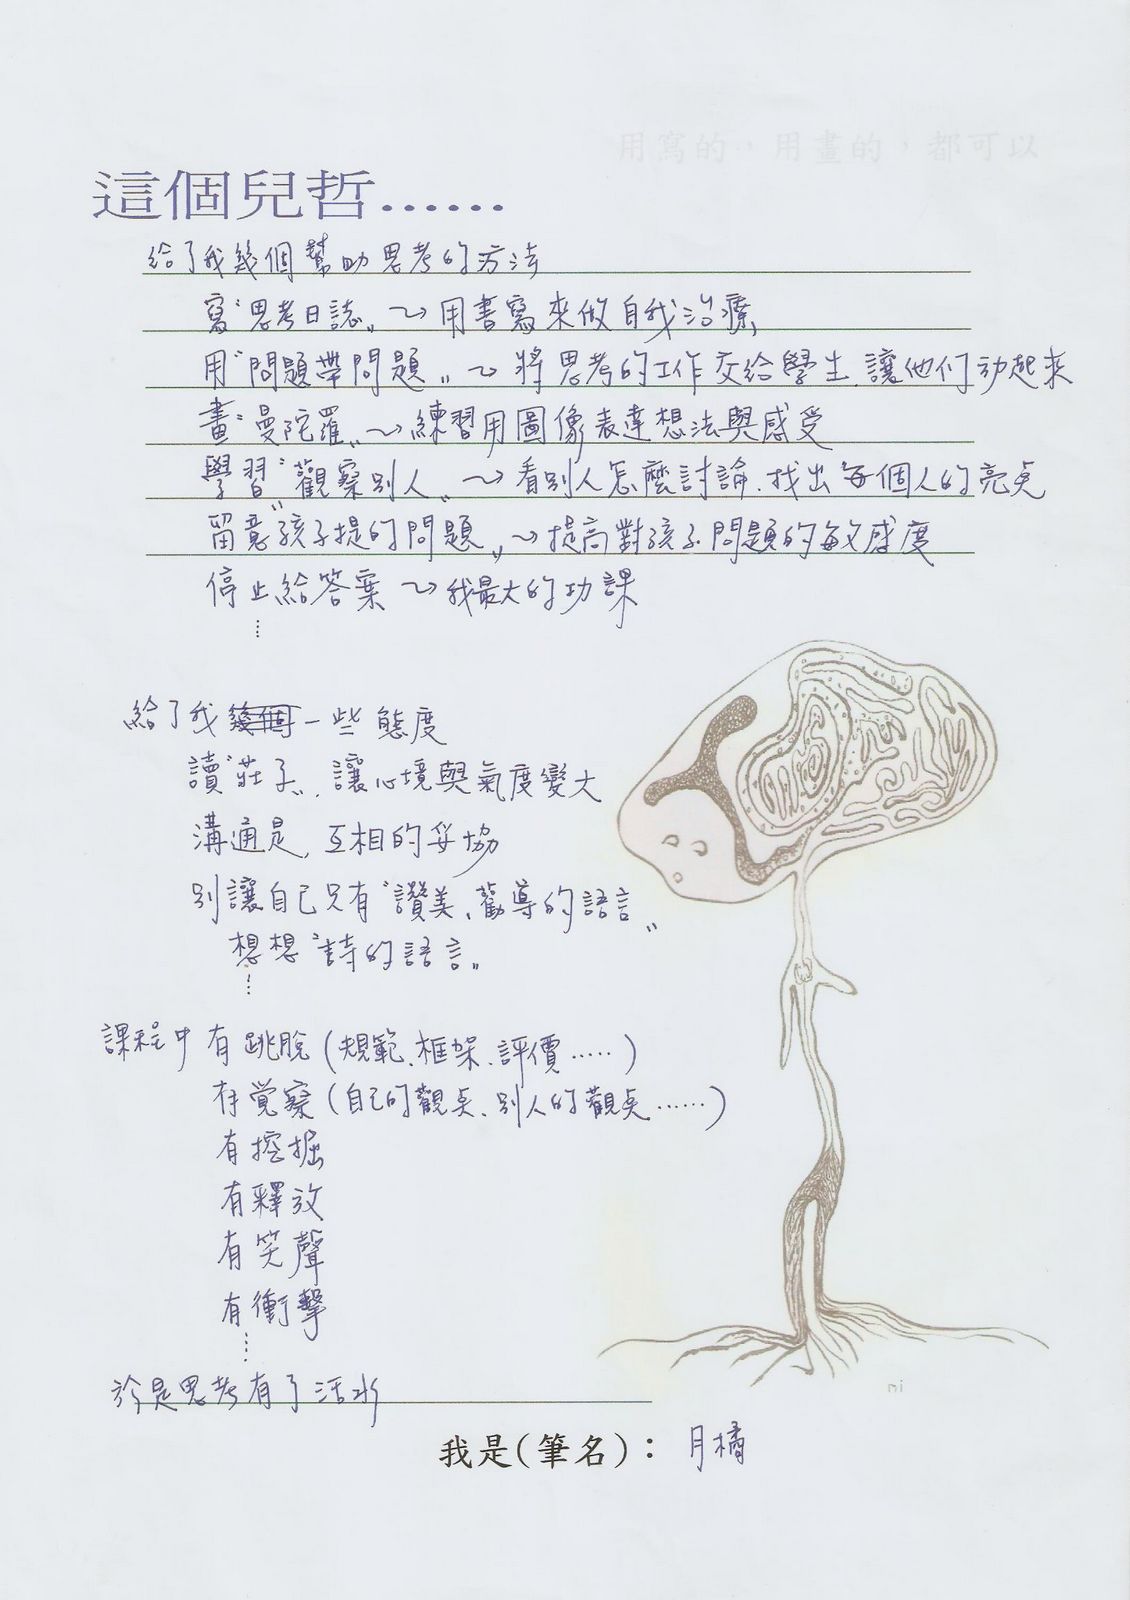 用寫的，用畫的，都可以
這個兒哲......
給了我幾個幫助思考的方法
寫〝思考日誌〞～→用書寫來做自我治療
用〝問題帶問題〞～→將思考的工作交給學生、讓他们动起來
畫〝曼陀羅〞～→練習用圖像表達想法與感受
學習〝觀察別人〞～→看別人怎麼討論、找出每個人的亮点
留意〝孩子提的問題〞～→提高對孩子問題的敏感度
停止給答案～→我最大的功課
⋮
給了我幾個一些態度
讀〝莊子〞、讓心境與氣度變大
溝通是、互相的妥協
別讓自己只有〝讚美、勸導的語言〞
想想〝詩的語言〞
⋮
課程中有跳脫（規範、框架、評價……）
有覺察（自己的觀点、別人的觀点……）
有挖掘
有釋放
有笑聲
有衝擊
⋮
於是思考有了活水
mi
我是(筆名)：月橘